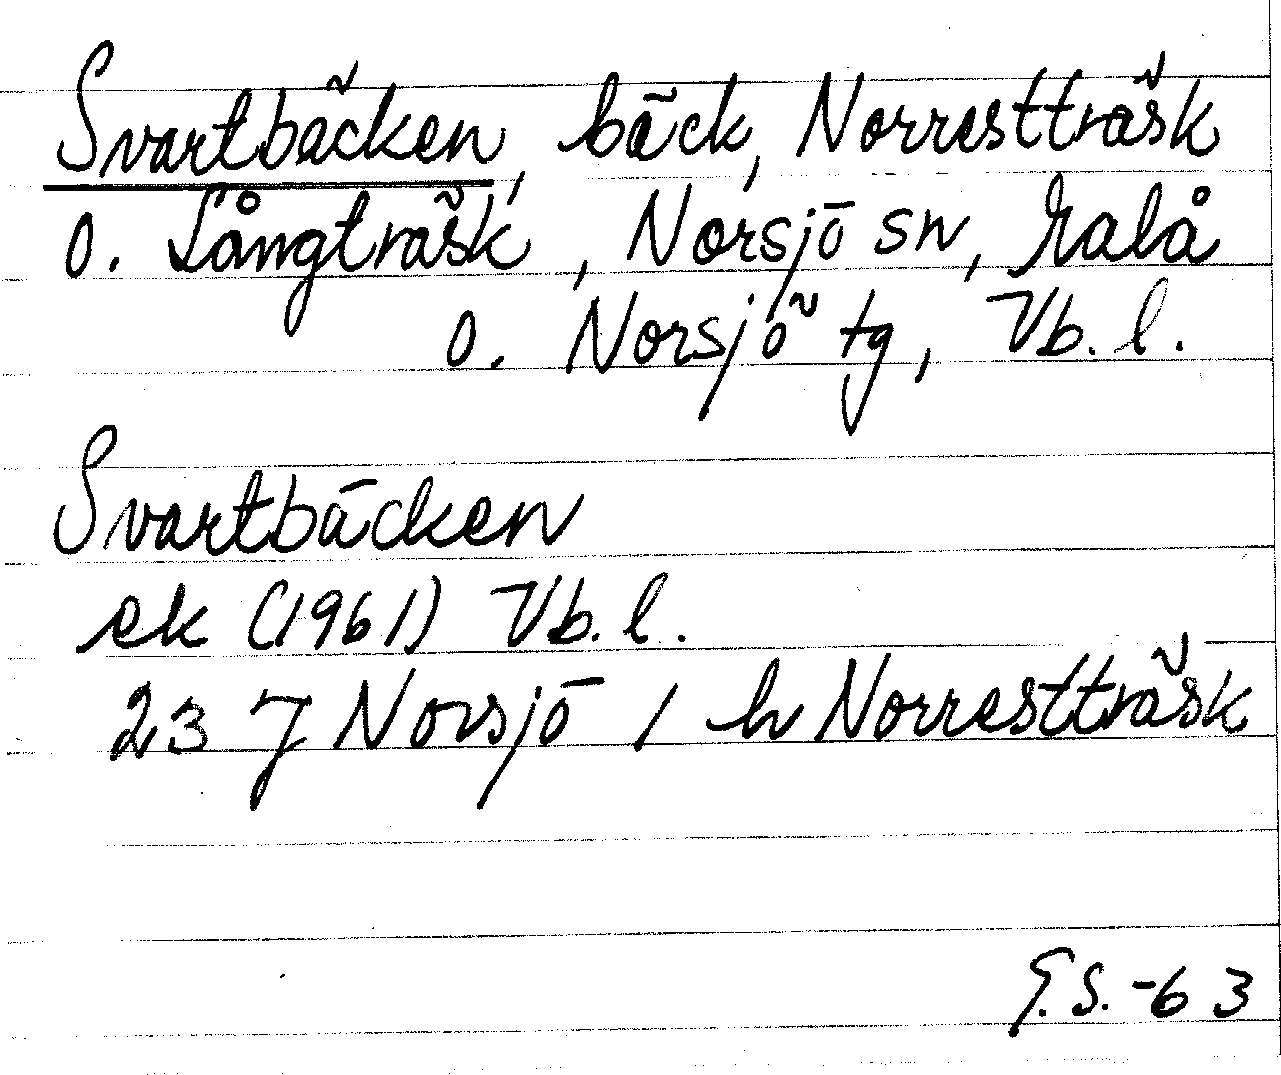 Svartbäcken, bäck, Norrestträsk
o. Långträsk, Norsjö sn, Malå
o. Norsjö tg, Vb. l.
Svartbäcken
ek (1961) Vb. l.
23 J Norsjö / h Norrestträsk
G.S.-63